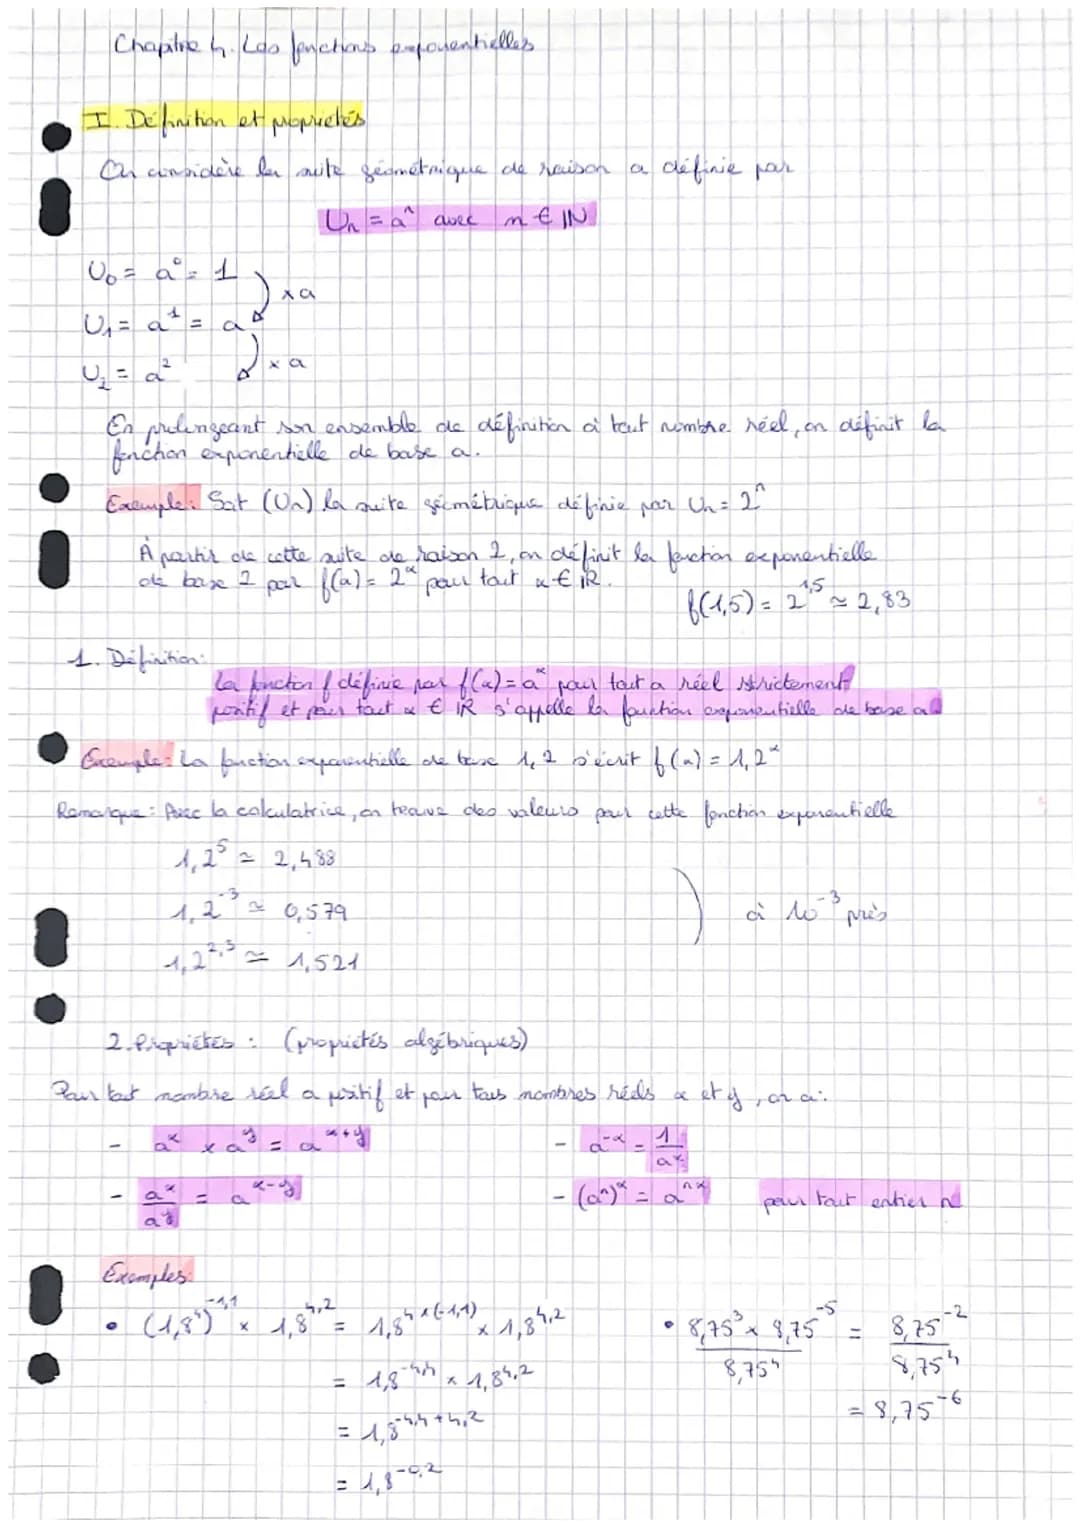 Chapitre 4. Les fonctions exponentielles
I. Définition et propriétés
On considère la suite géométrique de raison a définie par
Un = a^n avec n ∈ ℕ
U₀ = a⁰ = 1
× a
U₁ = a¹ = a
× a
U₂ = a²
En prolongeant son ensemble de définition à tout nombre réel, on définit la
fonction exponentielle de base a.
Exemple: Soit (Un) la suite géométrique définie par Un = 2^n
À partir de cette suite de raison 2, on définit la fonction exponentielle
de base 2 par f(x) = 2^x pour tout x ∈ ℝ.
f(1,5) = 2^1,5 ≃ 2,83
1. Définition:
La fonction f définie par f(x) = a^x pour tout a réel strictement
positif et pour tout x ∈ ℝ s'appelle la fonction exponentielle de base a
Exemple: La fonction exponentielle de base 1,2 s'écrit f(x) = 1,2^x
Remarque: Avec la calculatrice, on trouve des valeurs pour cette fonction exponentielle
1,2^5 ≃ 2,488
1,2^-3 ≃ 0,579 ) à 10^-3 près
1,2^2,3 ≃ 1,521
2. Propriétés : (propriétés algébriques)
Pour tout nombre réel a positif et pour tous nombres réels x et y, on a:
- a^x × a^y = a^x+y - a^-x = 1/a^x
- a^x/a^y = a^x-y - (a^n)^x = a^nx pour tout entier n
Exemples:
• (1,8^4)^-1,1 × 1,8^4,2 = 1,8^4×(-1,1) × 1,8^4,2
= 1,8^-4,4 × 1,8^4,2
= 1,8^-4,4+4,2
= 1,8^-0,2
• (8,75^3 × 8,75^-5)/8,75^4 = 8,75^-2/8,75^4
= 8,75^-6